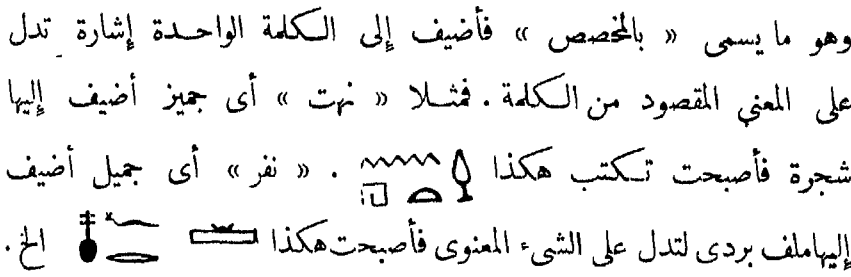 وهو ما يسمى « بالمخصص » فأضيف إلى الكلمة الواحدة إشارة تدل
على المعني المقصود من الكلمة . فمثلا « نهت » أى جميز أضيف إليها
شجرة فأصبحت تكتب هكذا . « نفر » أى جميل أضيف
إليها ملف بردى لتدل على الشىء المعنوى فأصبحت هكذا الخ .